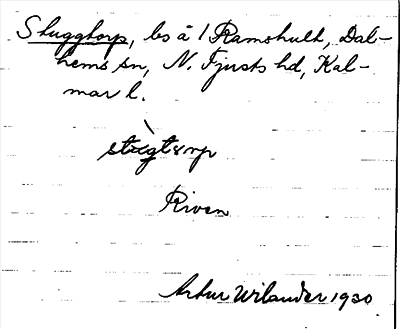 Stuggtorp, ls å 1 Ramshult, Dal-
hems sn, N. Tjusts hd, Kal-
mar l.
stugtorp
Riven
Artur Wilander 1930